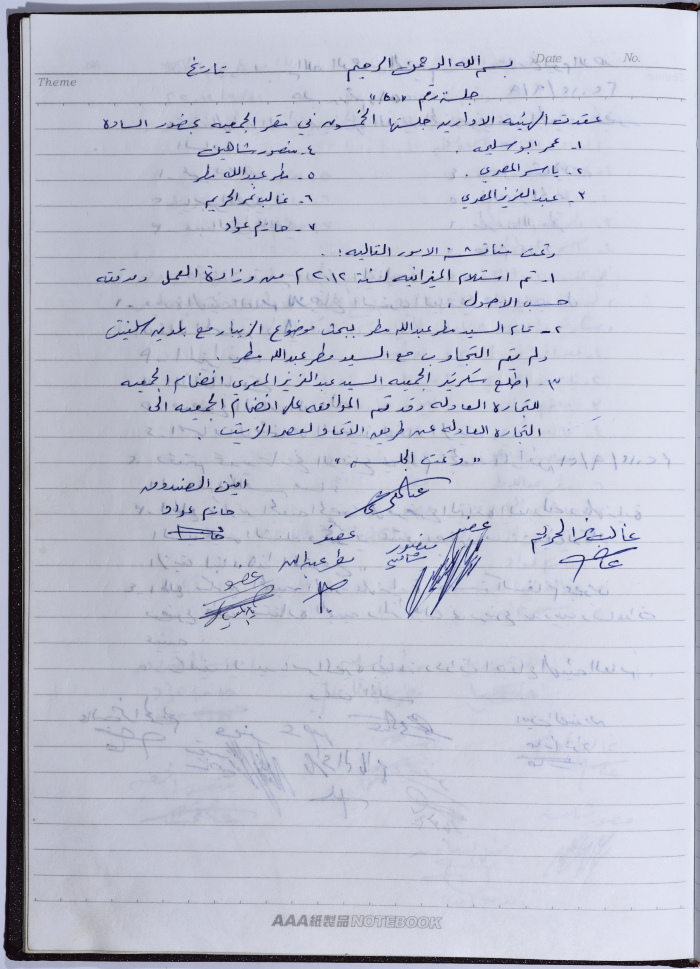 Date
No.
بسم الله الرحمن الرحيم تاريخ
Theme
جلسة رقم "٥٠"
عقدت الهيئه الاداريه جلستها الخمسون في مقر الجمعيه بحضور الساده
١- عمر ابو سليمه . ٤- منصور شاهين
٢- ياسر المصري . ٥- مطر عبدالله مطر
٣- عبدالعزيز المصري ٦- غالب نمر الحريم
٧- حازم عواد
وتمت مناقشة الامور التاليه :.
١- تم استلام الميزانيه لسنة ٢٠١٢ م من وزارة العمل ومدققه
حسب الاصول .
٢- قام السيد مطر عبدالله مطر ببحث موضوع الزيبار مع بلدية سلفيت
ولم يتم التجاوب مع السيد مطر عبدالله مطر .
٣- اطلع سكرتير الجمعيه السيد عبدالعزيز المصري انضمام الجمعيه
للتجارة العادله وقد تم الموافقه على انضمام الجمعيه الى
التجارة العادله عن طريق الاتحاد لعصر الزيتون .
" وتمت الجلسه "
امين الصندوق
حازم عواد
عضو
عضو
غالب نمر الحريم
منصور شاهين
مطر عبدالله
عضو
AAA紙製品NOTEBOOK